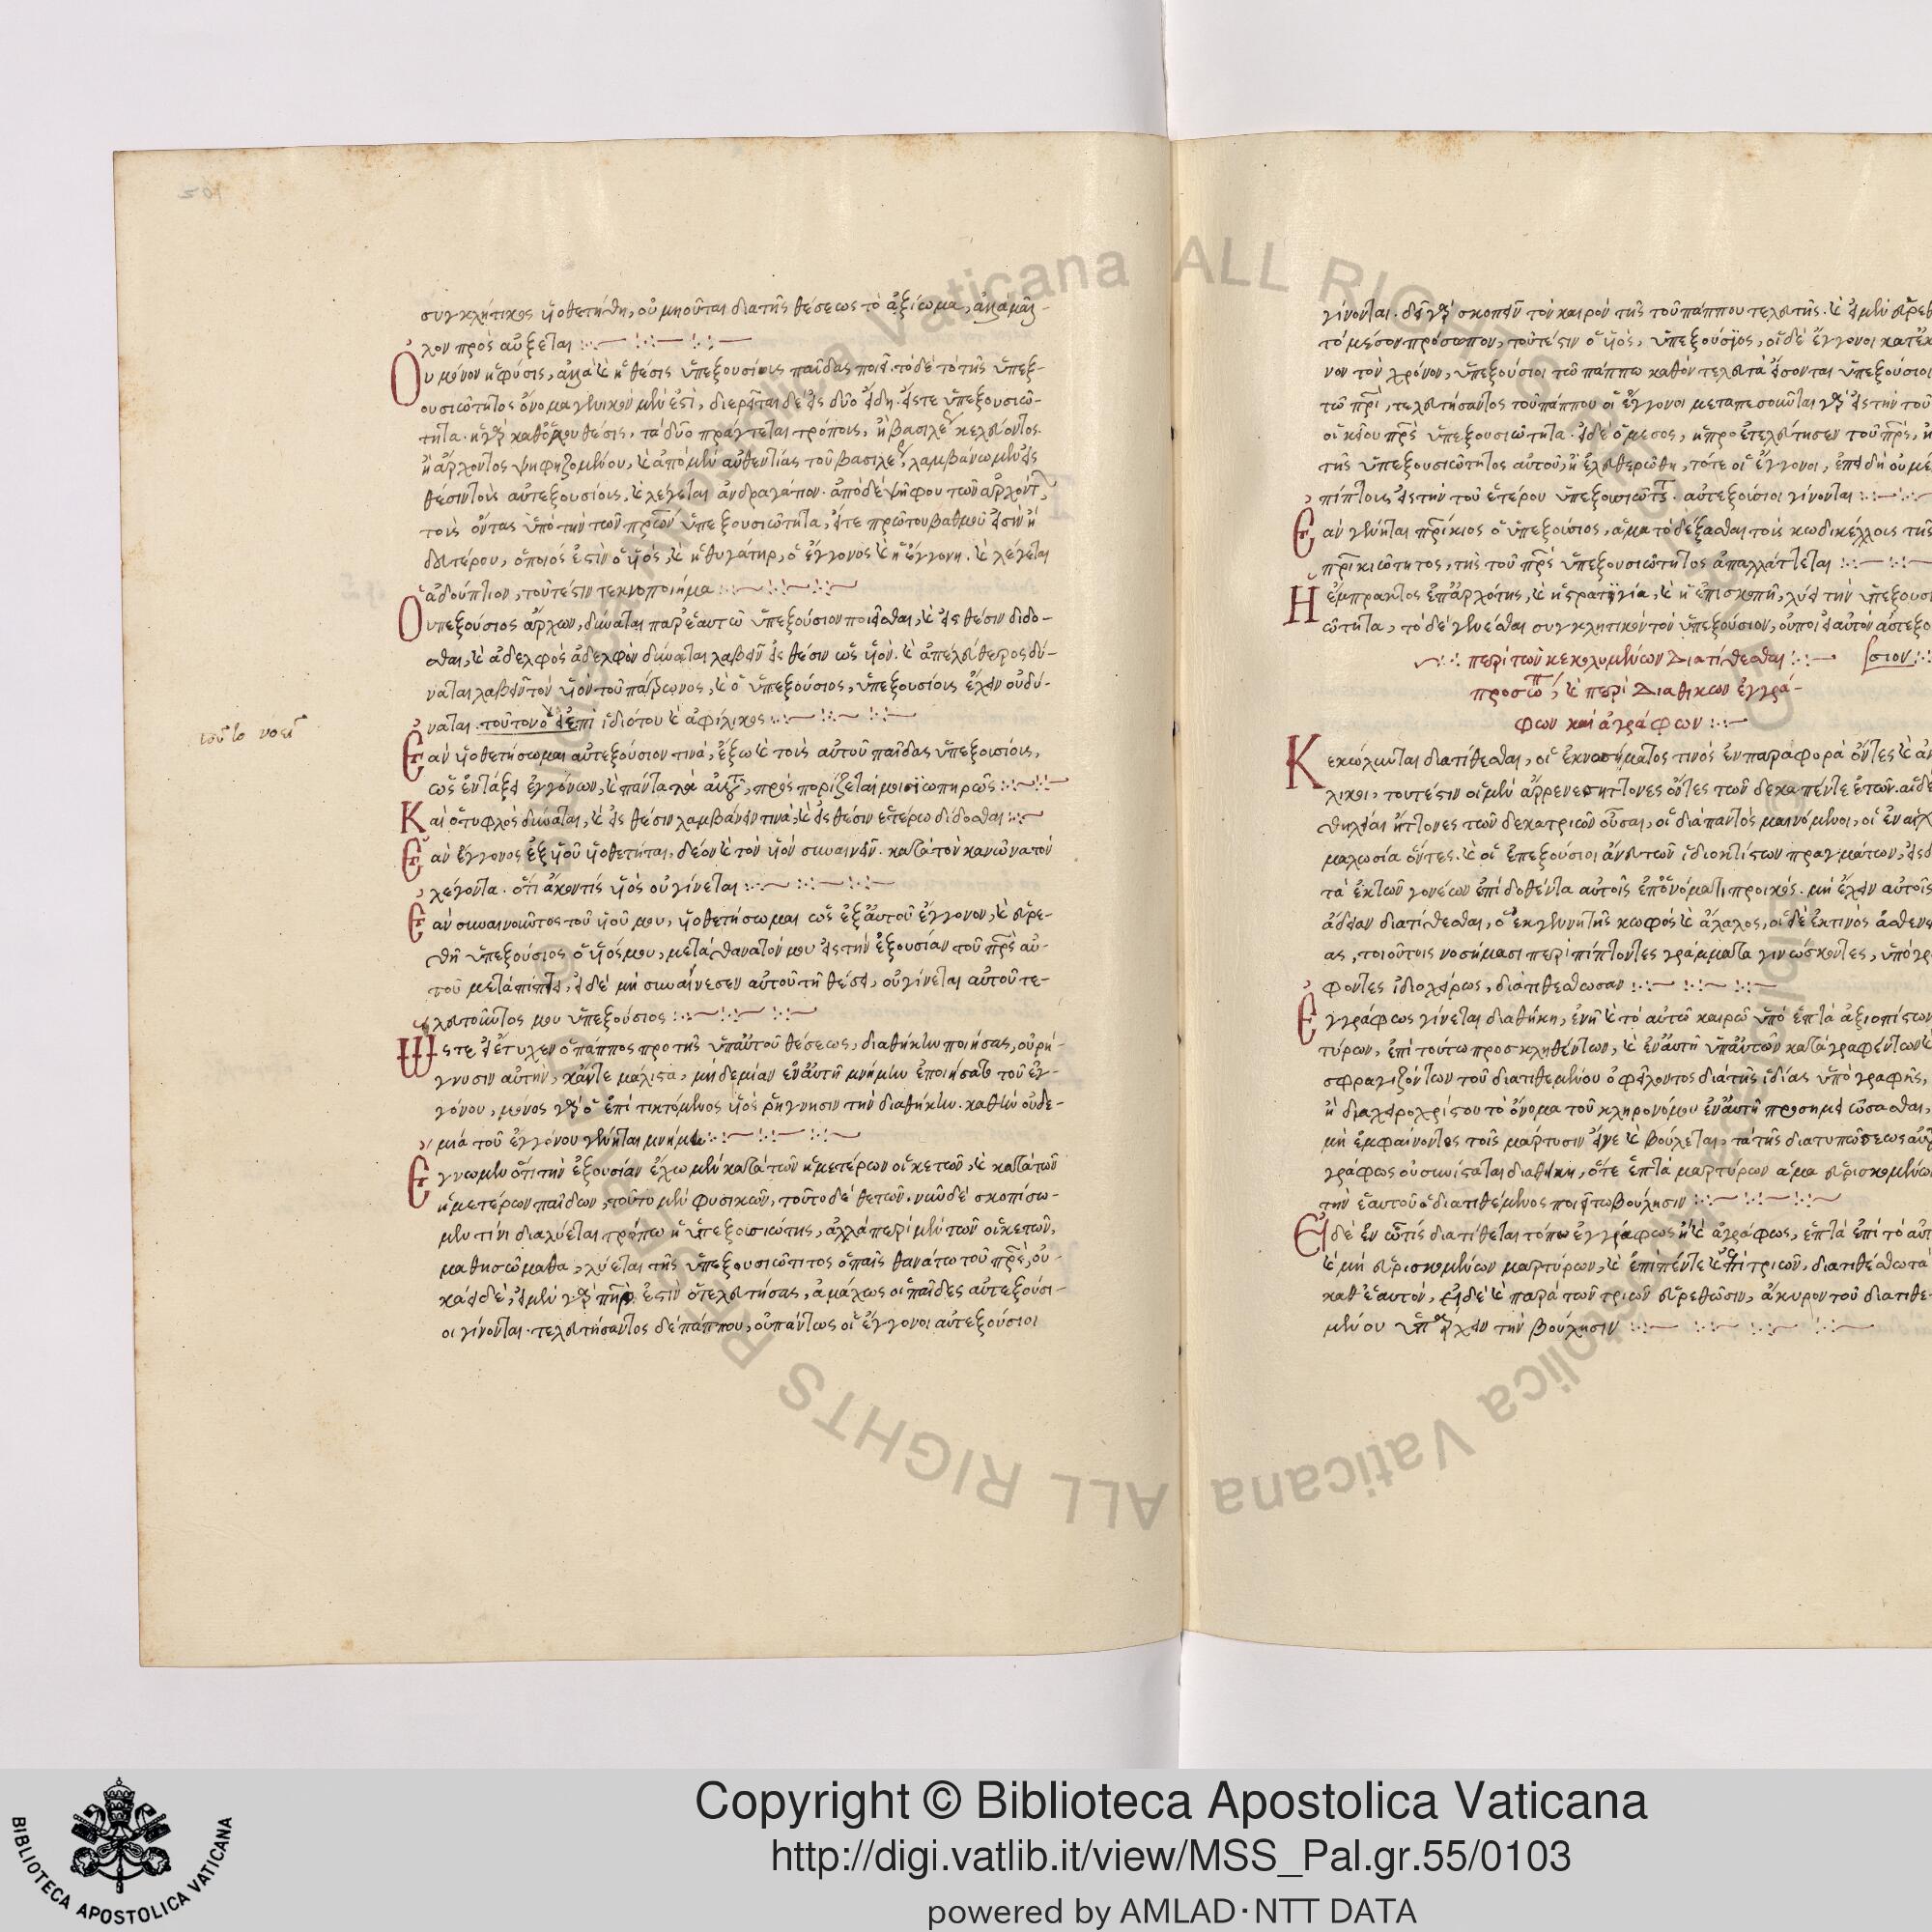 συγκλητικος υἱοθετηθῆ, οὐ μηοῦται διατῆς θέσεως τὸ ἀξίωμα, ἀλλὰ μᾶλ-
λον πρὸς αὔξεται
Οὐ μόνον ἡ φύσις, ἀλλὰ κ ἡ θέσις ὑπεξουσίους παῖδας ποιεῖ. τὸ δὲ τὸ τῆς ὑπεξ-
ουσιώτητος ὄνομα γενικὸν μὲν ἐστὶ, διερεῖται δὲ εἰς δύο εἴδη. εἴστε ὑπεξουσιώ-
τητα. θέσις, τὰ δύο πράγτεται τρόποις, ἢ βασιλέ κελεύοντος.
ἢ ἄρχοντος ψηφηζομένου, κ ἀπὸ μὲν αὐθεντίας τοῦ βασιλέ, λαμβάνωμεν εἰς
θέσιν τοὺς αὐτεξουσίους, κ λέγεται ἀνδραγάπον. ἀπὸ δὲ ψήφου τῶν ἀρχόντ
τοὺς ὄντας ὑπὸ τὴν τῶν πρων ὑπεξουσιώτητα, εἴτε πρώτου βαθμοῦ εἰσὶν ἢ
δευτέρου, ὁποιός ἐστὶν ὁ υἱός, κ ἡ θυγάτηρ, ὁ ἔγγονος κ ἡ ἔγγονη. κ λέγεται
ἀδούπτιον, τοῦτέστιν τεκνοποιήμα
Ὁ ὑπεξούσιος ἄρχων, δύναται παρ' ἑαυτῶ ὑπεξούσιον ποιεῖσθαι, κ εἰς θέσιν διδο-
σθαι, κ ἀδελφὸς ἀδελφὸν δύναται λαβεῖν εἰς θέσιν ὡς υἱὸν. κ ἀπελεύθερος δύ-
ναται λαβεῖν τὸν υἱὸν τοῦ πάτρωνος, κ ὁ ὑπεξούσιος, ὑπεξουσίους ἔχειν οὐ δύ-
ναται. ἐπὶ ἰδιότου κ ἀφίλικος
τοῦτο νοεῖ
Ἐὰν υἱοθετήσωμαι αὐτεξούσιον τινὰ, ἕξω κ τοὺς αὐτοῦ παῖδας ὑπεξουσίους,
ὡς ἐν τάξει ἐγγόνων, κ πάντα τὰ, πρὸς πορίζεται μοι
Καὶ ὁ τυφλὸς δύναται, κ εἰς θέσιν λαμβάνειν τινὰ, κ εἰς θέσιν ἑτέρω δίδοσθαι
Ἐὰν ἔγγονος ἐξ υἱοῦ υἱοθετῆται, δέον κ τὸν υἱὸν συναινεῖν. κατὰ τὸν κανῶνα τὸν
λέγοντα. ὅτι ἄκοντίς υἱὸς οὐ γίνεται
Ἐὰν συναινοῦντος τοῦ υἱοῦ μου, υἱοθετήσωμαι ὡς ἐξ αὐτοῦ ἔγγονον, κ εὑρε-
θῆ ὑπεξούσιος ὁ υἱός μου, μετὰ θανατόν μου εἰς τὴν ἐξουσίαν τοῦ πρς αὐ-
τοῦ μεταπίπτει, εἰ δὲ μὴ συναίνεσεν αὐτοῦ τῆ θέσει, οὐ γίνεται αὐτοῦ τε-
λευτοῦντος μου ὑπεξούσιος
Ὥστε εἰ ἔτυχεν ὁ πάππος προ τῆς ὑπ' αὐτοῦ θέσεως, διαθήκην ποιήσας, οὐ ρή-
γνυσιν αὐτὴν, κἄντε μάλιστα, μηδεμίαν ἐν αὐτῆ μνήμην ἐποιήσατο τοῦ ἐγ-
γόνου, μόνος γὰρ ὁ ἐπὶ τικτόμενος υἱὸς ῥήγνησιν τὴν διαθήκην. καθ' ἣν οὐδε-
μιὰ τοῦ ἐγγόνου γένηται μνήμη
Ἔγνωμεν ὅτι τὴν ἐξουσίαν ἔχωμεν κατὰ τῶν ἡμετέρων οἰκετῶν, κ κατὰ τῶν
ἡμετέρων παίδων, τοῦτο μὲν φυσικῶν, τοῦτο δὲ θετῶν. νῦν δὲ σκοπίσω-
μεν τίνι διαλύεται τρόπω ἡ ὑπεξουσιώτης, ἀλλὰ περὶ μὲν τῶν οἰκετῶν,
μαθησώμαθα, λύεται τῆς ὑπεξουσιώτιτος ὁ παῖς θανάτω τοῦ πρς, οὐ-
κ ἀεὶ δὲ, εἰ μὲν γὰρ πηρ ἐστὶν ὁ τελευτήσας, ἀμάχως οἱ παῖδες αὐτεξούσι-
οι γίνονται. τελευτήσαντος δὲ πάππου, οὐ πάντως οἱ ἔγγονοι αὐτεξούσιοι
γίνονται. δεῖ γὰρ σκοπεῖν τὸν καιρὸν τῆς τοῦ πάππου τελευτῆς. κ εἰ μὲν εὑρεθ
τὸ μέσον πρόσωπον, τοῦτέστιν ὁ υἱὸς, ὑπεξούσιος, οἱ δὲ ἔγγονοι κατ' ἐκ
νον τὸν χρόνον, ὑπεξούσιοι τῶ πάππω καθὸν τελευτὰ ἔσονται ὑπεξούσιοι
τῶ πρι, τελευτήσαντος τοῦ πάππου οἱ ἔγγονοι μεταπεσοῦνται γὰρ εἰς τὴν τοῦ
οἰκείου πρς ὑπεξουσιώτητα. εἰ δὲ ὁ μέσος, ἢ προετελεύτησεν τοῦ πρς, ἢ
τῆς ὑπεξουσιώτητος αὐτοῦ, ἢ ἐλευθερώθη, τότε οἱ ἔγγονοι, ἐπειδὴ οὐ μέ
πίπτουσ εἰς τὴν τοῦ ἑτέρου αὐτεξούσιοι γίνονται
Ἐὰν γένηται πρίκιος ὁ ὑπεξούσιος, ἅμα τὸ δέξασθαι τοὺς κωδικέλλους τῆς
πρικιώτητος, τῆς τοῦ πρς ὑπεξουσιώτητος ἀπαλλάττεται
Ἡ ἔμπρακτος ἐπαρχότης, κ ἡ στρατηγία, κ ἡ ἐπισκοπὴ, λύει τὴν ὑπεξουσι
ώτητα, τὸ δὲ γενέσθαι συγκλητικὸν τὸν ὑπεξούσιον, οὐ ποιεῖ αὐτὸν αὐτεξο
περὶ τῶν κεκωλυμένων διατίθεσθαι σιον
προσώπ, κ περὶ διαθηκων ἐγγρά-
φων καὶ ἀγράφων
Κεκώλυνται διατίθεσθαι, οἱ ἐκ νοσήματος τινὸς ἐν παραφορὰ ὄντες κ ἀν
λικοι, τουτέστιν οἱ μὲν ἄρρενες ἥττονες ὄντες τῶν δεκαπέντε ἐτῶν. αἱ δὲ
θηλείαι ἥττονες τῶν δεκατριῶν οὖσαι, οἱ διὰ παντὸς μαινόμενοι, οἱ ἐν αἰχ
μαλωσία ὄντες. κ οἱ ὑπεξούσιοι ἄνευ τῶν ἰδιοκτίστων πραγμάτων, εἰς δ
τὰ ἐκ τῶν γονέων ἐπιδοθέντα αὐτοῖς ἐπ' ὀνόματι προικός. μὴ ἔχειν αὐτοῖς
ἄδειαν διατίθεσθαι, ὁ ἐκ γεννητῆς κωφὸς κ ἄλαλος, οἱ δὲ ἐκ τινὸς ἀσθενε
ας, τοιούτοις νοσήμασι περιπίπτοντες γράμματα γινώσκοντες, ὑπὸ γρ
φοντες ἰδιοχείρως, διατιθέσθωσαν
Ἐγγράφως γίνεται διαθήκη, ἐν ἢ κ τὸ αὐτῶ καιρῶ ὑπὸ ἑπτὰ ἀξιοπίστων
τύρων, ἐπὶ τούτω προσκληθέντων, κ ἐν αὐτῆ ὑπ' αὐτῶν καταγραφέντων κ
σφραγιζόντων τοῦ διατιθεμένου ὀφείλοντος διὰ τῆς ἰδίας ὑπογραφῆς,
ἢ διαχειροχρίστου τὸ ὄνομα τοῦ κληρονόμου ἐν αὐτῆ προσημειώσασθαι,
μὴ ἐμφαίνοντος τοῖς μάρτυσιν εἴγε κ βούλεται, τὰ τῆς διατυπώσεως
γράφως οὐ συνίσταται διαθήκη, ὅτε ἑπτὰ μαρτύρων ἅμα εὑρισκομένων
τὴν ἑαυτοῦ ὁ διατιθέμενος ποιεῖ τω βούλησιν
Εἰ δὲ ἐν ὧ τίς διατίθεται τόπω ἐγγράφως ἢ κ ἀγράφως, ἑπτὰ ἐπὶ τὸ αὐτ
κ μὴ εὑρισκομένων μαρτύρων, κ ἐπὶ πέντε κ ἐπὶ τριῶν, διατιθέσθω τὰ
καθ' ἑαυτὸν, εἰ δὲ κ παρὰ τῶν τριῶν εὑρεθῶσιν, ἄκυρον τοῦ διατιθε-
μένου ὑπάρχειν τὴν βούλησιν
Copyright © Biblioteca Apostolica Vaticana
http://digi.vatlib.it/view/MSS_Pal.gr.55/0103
powered by AMLAD·NTT DATA
BIBLIOTECA APOSTOLICA VATICANA